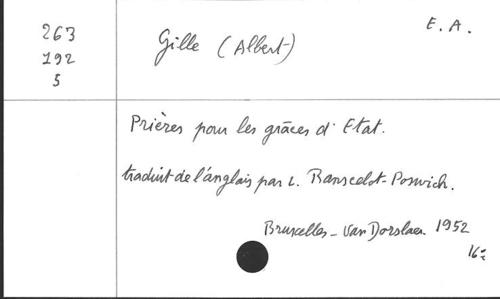 263
192
5
Gille (Albert)
E. A.
Prières pour les grâces d'Etat.
traduit de l'anglais par L.
Bruxelles - Van Dorslaer 1952
16=